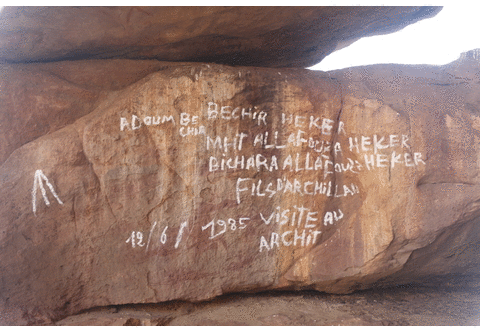 ADOUM BE
CHIR
BECHIR HEKER
MHT ALLAFOUZA HEKER
BICHARA ALLAFOUZA HEKER
FILS D'ARCHILLAH
12/6/1985 VISITE AU
ARCHIT